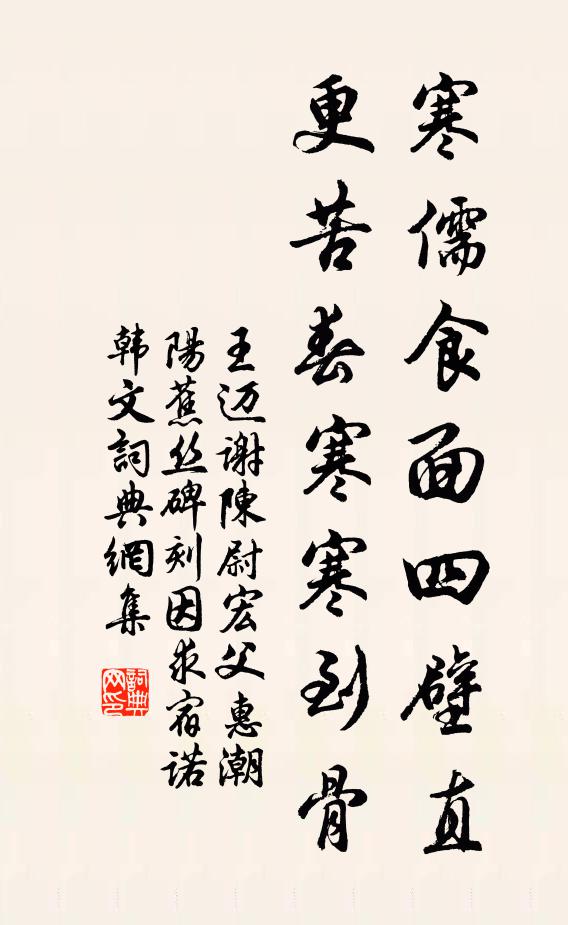 寒儒食面四壁直
更苦春寒寒到骨
王迈謝陳尉宏父惠潮
陽蕉丝碑刻因求宿诺
韩文詞典網集
詞典
网印